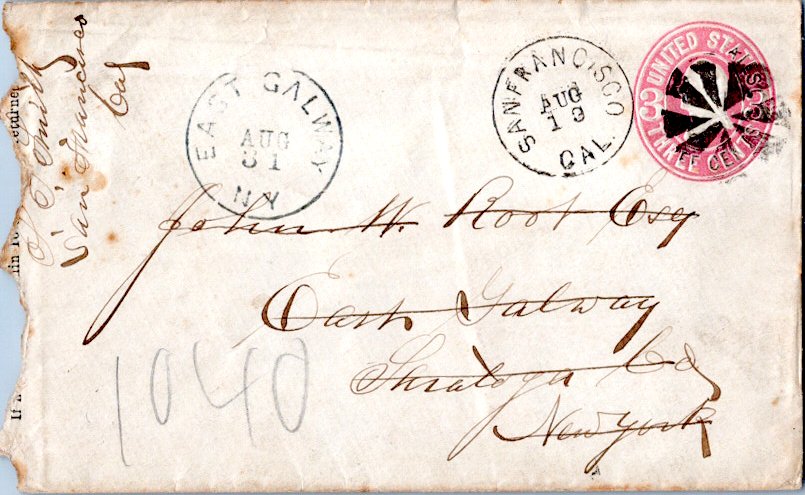 San Francisco
Cal
eturned
in 10
If n
EAST GALWAY
AUG
31
N.Y
SAN FRANCISCO
AUG
19
CAL.
UNITED STATES
3
3
THREE CENTS
John W. Root Esq
East Galway
Saratoga Co
New York
1040